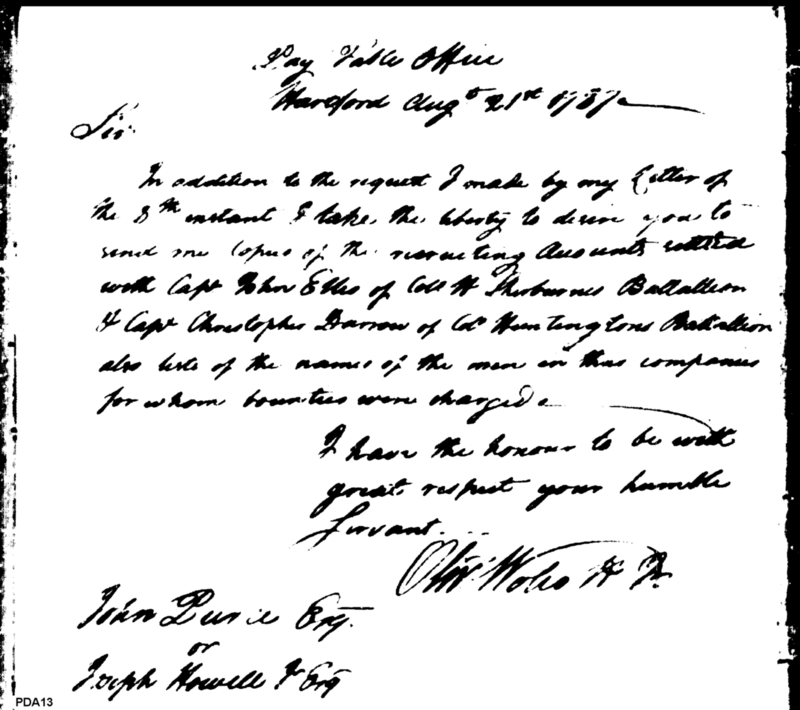 Pay Table Office
Hartford Augt 21st 1787
Sir
In addition to the request I made by my Letter of
the 8th instant I take the liberty to desire you to
send me Copies of the recruiting Accounts settled
with Capt John Ellis of Colo H Sherburnes Battallion
& Capt Christopher Darrow of Colo Huntingtons Battallion
also lists of the names of the men in thier companies
for whom bounties were charged
I have the honour to be with
great respect your humble
Servant
Olivr Wolcott Jr
John Pierce Esq.
or
Joseph Howell Jr Esq
PDA13